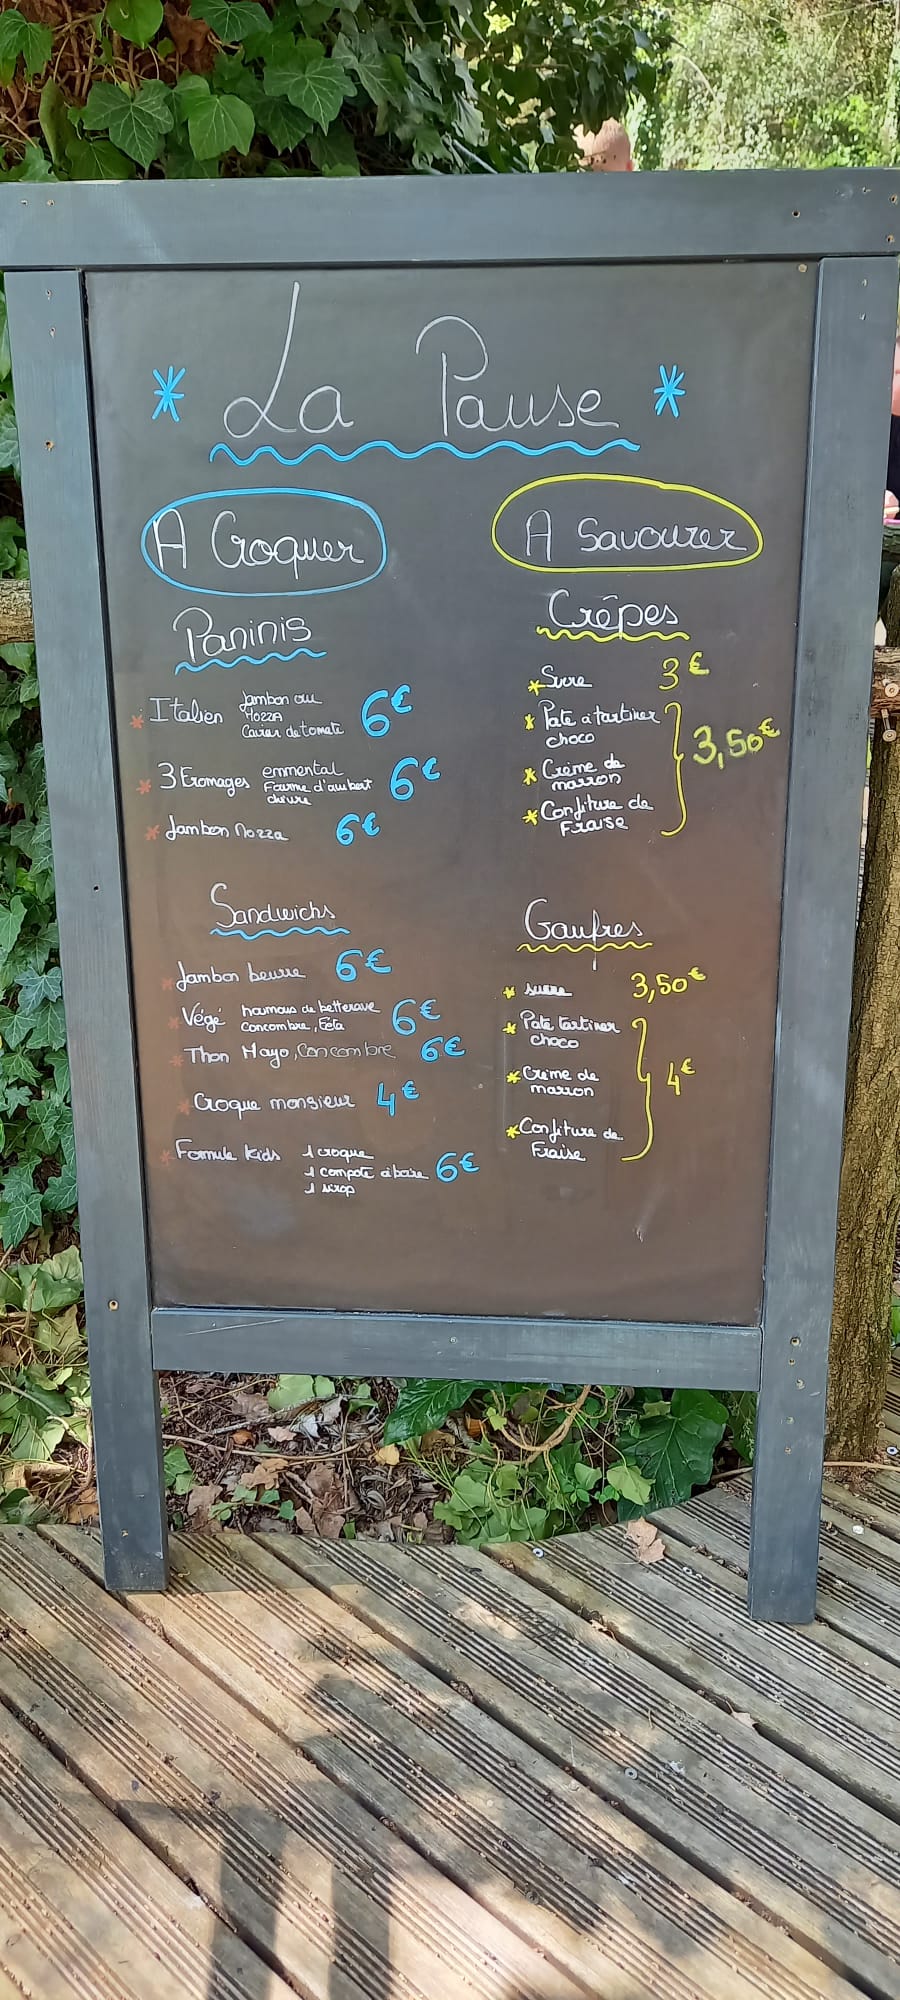 * La Pause *
A Croquer
Paninis
* Italien jambon cru 6€
Mozza
Caviar de tomate
* 3 Fromages emmental 6€
Fourme d'ambert
chèvre
* Jambon Mozza 6€
Sandwichs
* Jambon beurre 6€
* Végé houmous de betterave 6€
Concombre, Féta
* Thon Mayo, Concombre 6€
* Croque monsieur 4€
* Formule kids 1 croque
1 compote à boire 6€
1 sirop
A Savourer
Crêpes
* Sucre 3€
* Pate à tartiner
choco
* Crème de
marron
* Confiture de
Fraise
3,50€
Gaufres
* sucre 3,50€
* Pate tartiner
choco
* Crème de
marron
* Confiture de
Fraise
4€